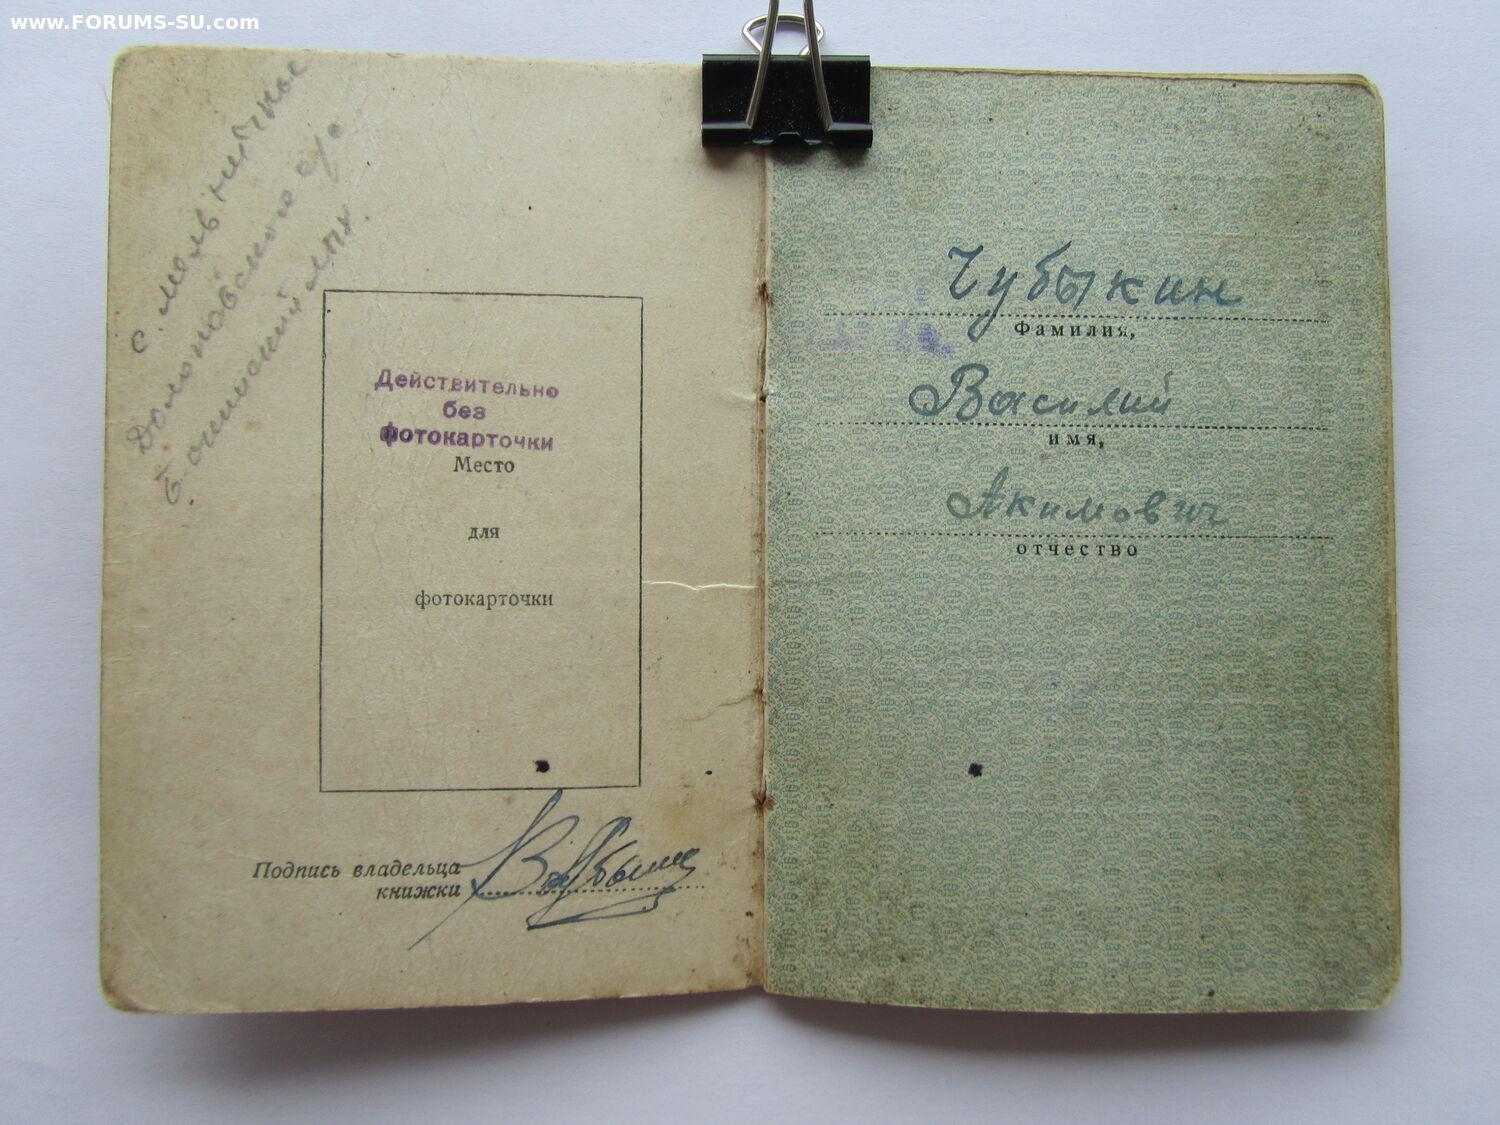 www.FORUMS-SU.com
с. Мельничное
Действительно
без
фотокарточки
Место
для
фотокарточки
Подпись владельца
книжки
Чубыкин
Фамилия,
Василий
имя,
Акимович
отчество